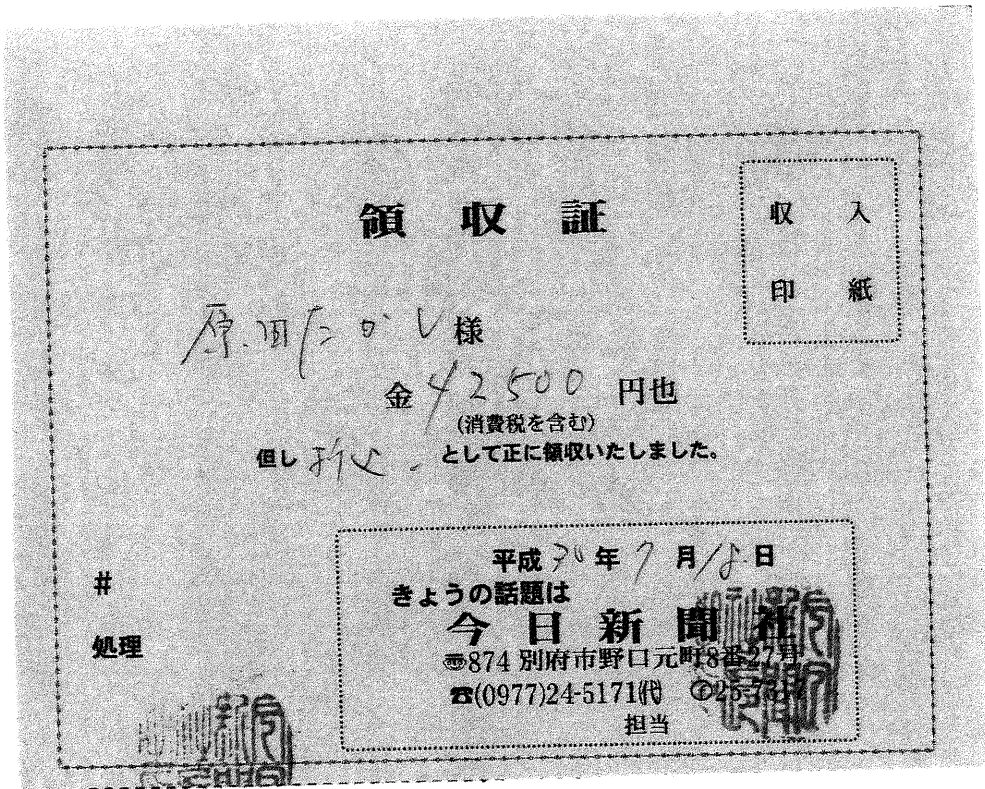 領収証
収入
印紙
原田たかし様
金 42500 円也
(消費税を含む)
但し 折込 . として正に領収いたしました。
平成30年7月18日
#
処理
きょうの話題は
今日新聞社
〠874 別府市野口元町8番27号
☎(0977)24-5171㈹
担当